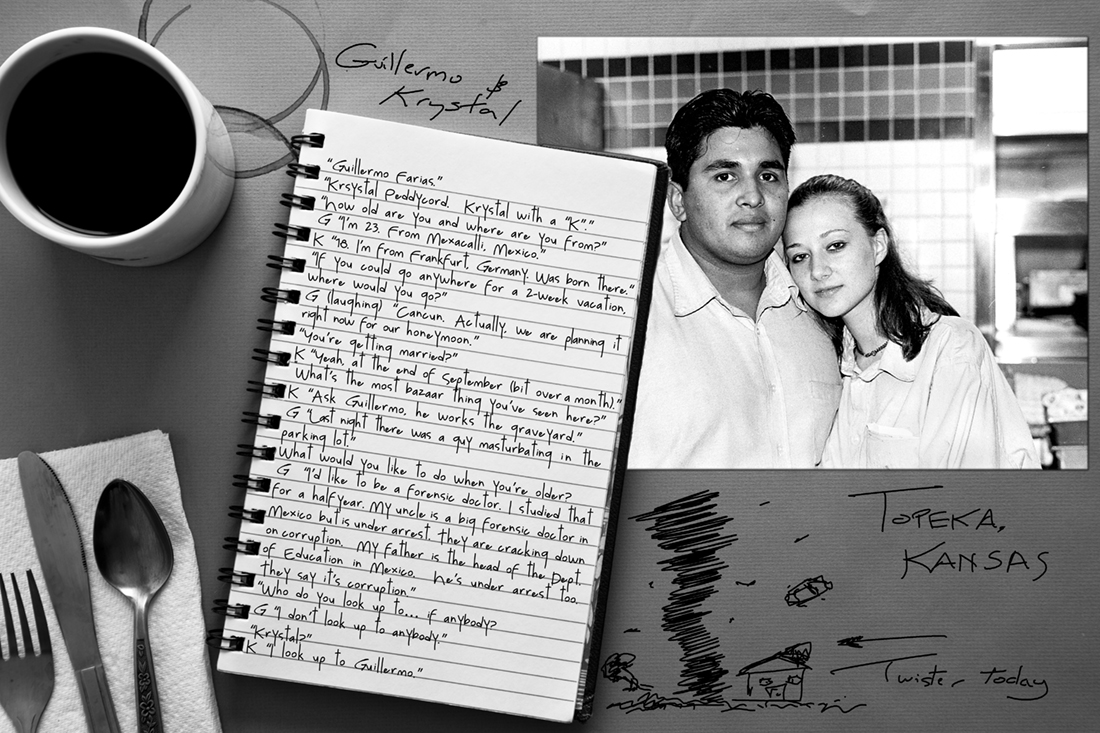 Guillermo &
Krystal
"Guillermo Farias."
"Krsystal Peddycord. Krystal with a "K"."
"how old are you and where are you from?"
G "I'm 23. From Mexacalli, Mexico."
K "18. I'm from Frankfurt, Germany. Was born there."
"If you could go anywhere for a 2-week vacation,
where would you go?"
G (laughing) "Cancun. Actually, we are planning it
right now for our honeymoon."
"You're getting married?"
K "Yeah, at the end of September (bit over a month)."
What's the most bazaar thing you've seen here?"
K "Ask Guillermo, he works the graveyard."
G "Last night there was a guy masturbating in the
parking lot."
What would you like to do when you're older?
G "I'd like to be a forensic doctor. I studied that
for a half year. My uncle is a big forensic doctor in
Mexico but is under arrest. they are cracking down
on corruption. My father is the head of the Dept.
of Education in Mexico. he's under arrest too.
they say it's corruption."
"Who do you look up to... if anybody?
G "I don't look up to anybody."
"Krystal?"
K "I look up to Guillermo."
TOPEKA,
KANSAS
Twister today